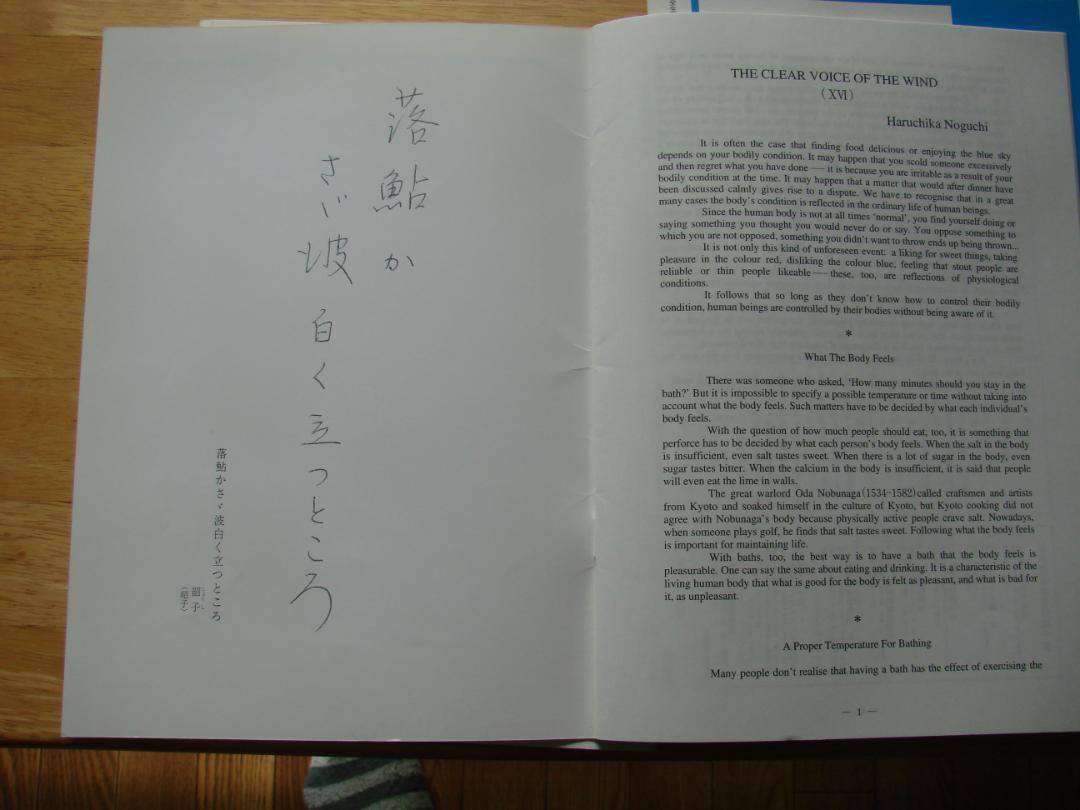 落鮎か
さゞ波白く立つところ
落鮎かさゞ波白く立つところ
韶子
（昭子）
THE CLEAR VOICE OF THE WIND
（XVI）
Haruchika Noguchi
It is often the case that finding food delicious or enjoying the blue sky
depends on your bodily condition. It may happen that you scold someone excessively
and then regret what you have done — it is because you are irritable as a result of your
bodily condition at the time. It may happen that a matter that would after dinner have
been discussed calmly gives rise to a dispute. We have to recognise that in a great
many cases the body's condition is reflected in the ordinary life of human beings.
Since the human body is not at all times 'normal', you find yourself doing or
saying something you thought you would never do or say. You oppose something to
which you are not opposed, something you didn't want to throw ends up being thrown...
It is not only this kind of unforeseen event: a liking for sweet things, taking
pleasure in the colour red, disliking the colour blue, feeling that stout people are
reliable or thin people likeable — these, too, are reflections of physiological
conditions.
It follows that so long as they don't know how to control their bodily
condition, human beings are controlled by their bodies without being aware of it.
*
What The Body Feels
There was someone who asked, 'How many minutes should you stay in the
bath?' But it is impossible to specify a possible temperature or time without taking into
account what the body feels. Such matters have to be decided by what each individual's
body feels.
With the question of how much people should eat, too, it is something that
perforce has to be decided by what each person's body feels. When the salt in the body
is insufficient, even salt tastes sweet. When there is a lot of sugar in the body, even
sugar tastes bitter. When the calcium in the body is insufficient, it is said that people
will even eat the lime in walls.
The great warlord Oda Nobunaga(1534-1582)called craftsmen and artists
from Kyoto and soaked himself in the culture of Kyoto, but Kyoto cooking did not
agree with Nobunaga's body because physically active people crave salt. Nowadays,
when someone plays golf, he finds that salt tastes sweet. Following what the body feels
is important for maintaining life.
With baths, too, the best way is to have a bath that the body feels is
pleasurable. One can say the same about eating and drinking. It is a characteristic of the
living human body that what is good for the body is felt as pleasant, and what is bad for
it, as unpleasant.
*
A Proper Temperature For Bathing
Many people don't realise that having a bath has the effect of exercising the
— 1 —